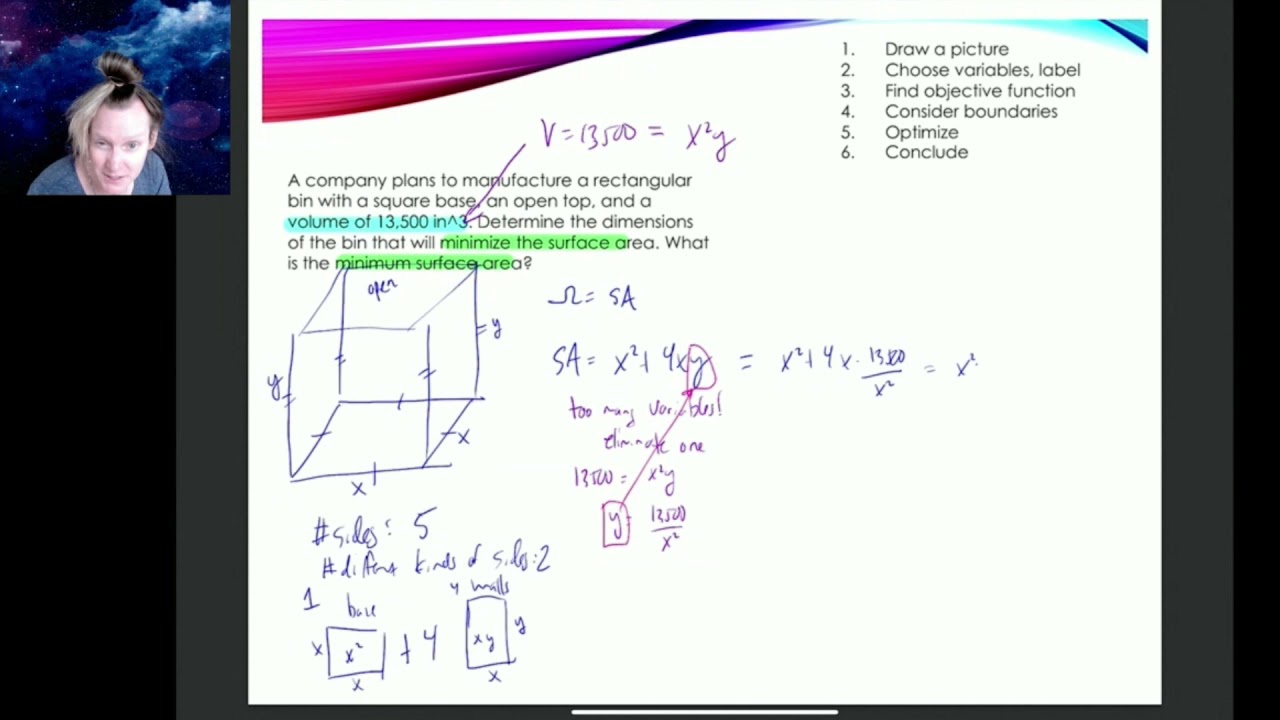 1. Draw a picture
2. Choose variables, label
3. Find objective function
4. Consider boundaries
5. Optimize
6. Conclude
V = 13500 = x²y
A company plans to manufacture a rectangular
bin with a square base, an open top, and a
volume of 13,500 in^3. Determine the dimensions
of the bin that will minimize the surface area. What
is the minimum surface area?
open
y
y
x
x
Ω = SA
SA = x² + 4xy = x² + 4x · 13500/x² = x²
too many variables!
eliminate one
13500 = x²y
y = 13500/x²
# sides: 5
# different kinds of sides: 2
1 base
4 walls
x x² + 4 xy y
x x